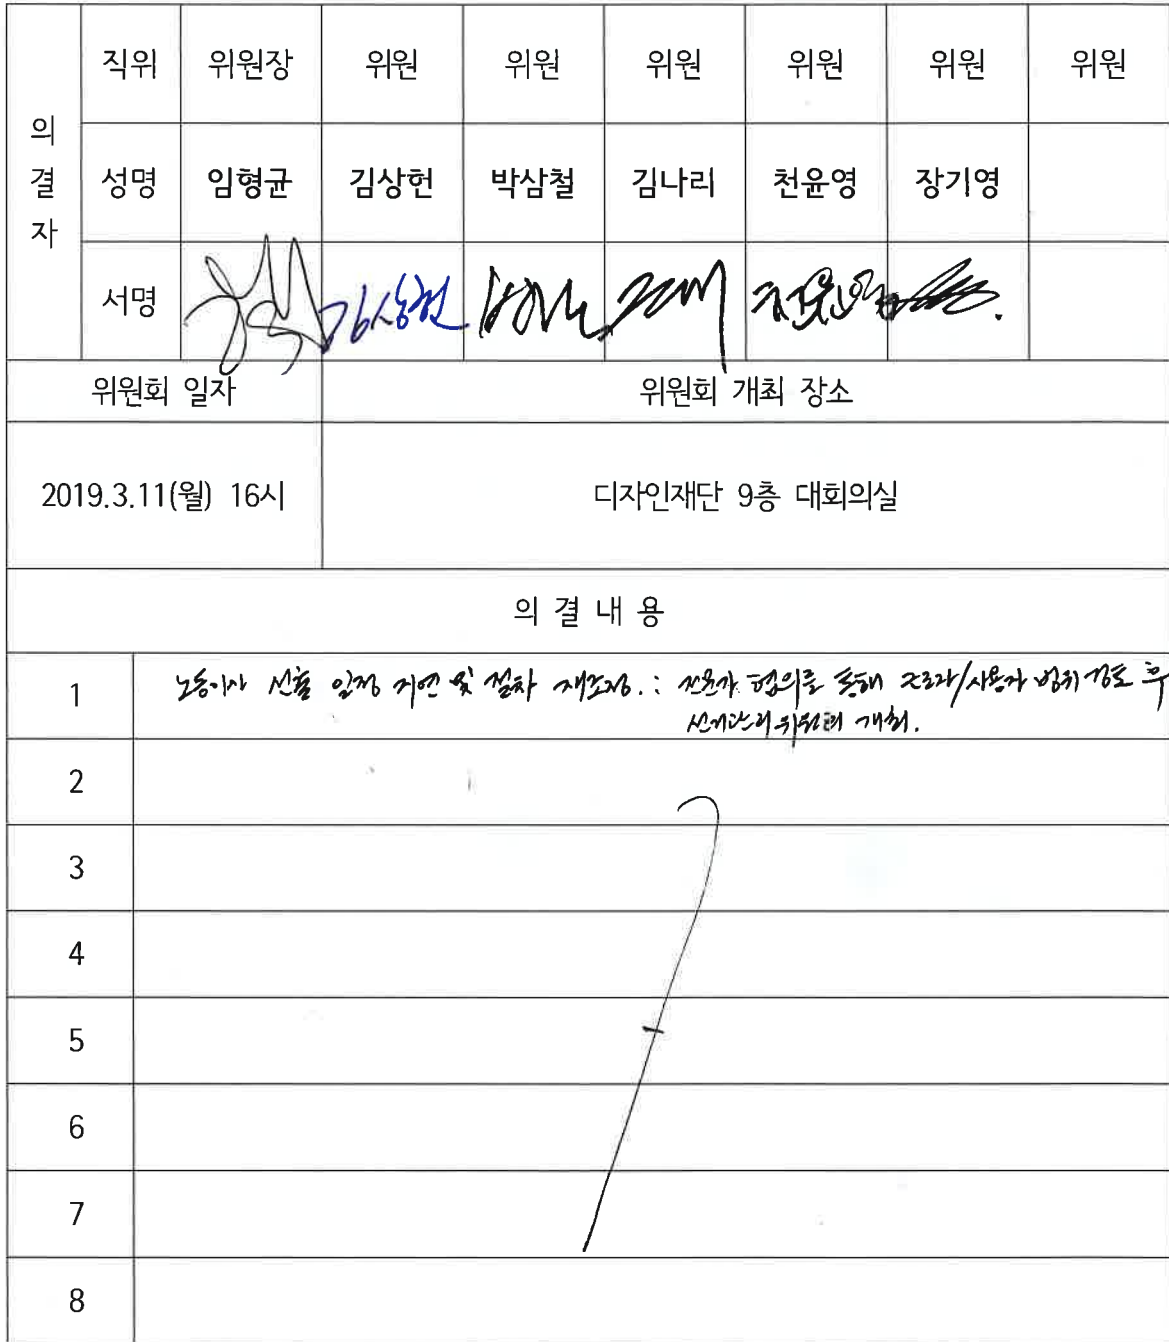 의결자
직위 위원장 위원 위원 위원 위원 위원 위원
성명 임형균 김상헌 박삼철 김나리 천윤영 장기영
서명 김상헌
위원회 일자 위원회 개최 장소
2019.3.11(월) 16시 디자인재단 9층 대회의실
의 결 내 용
1 노동이사 선출 일정 지연 및 절차 재조정. : 전문가 협의를 통해 근로자/사용자 범위 검토 후
선거관리위원회 개최.
2
3
4
5
6
7
8